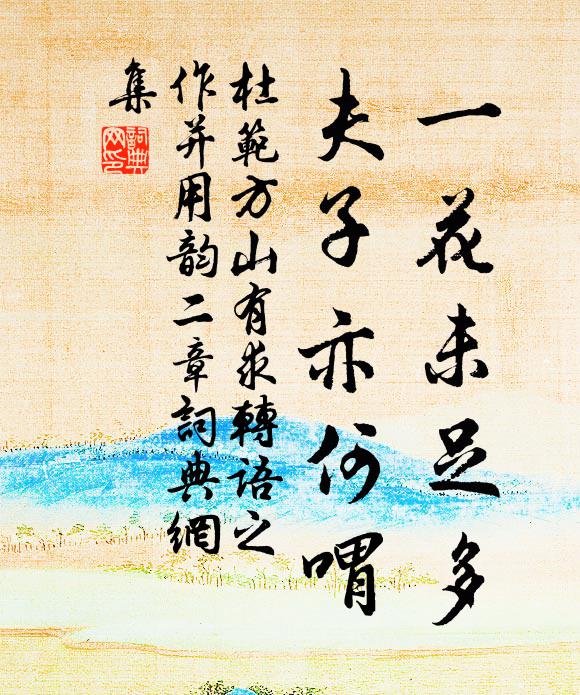 一花未足多
夫子亦何喟
杜範方山有求轉語之
作并用韵二章詞典網
集
詞典網印